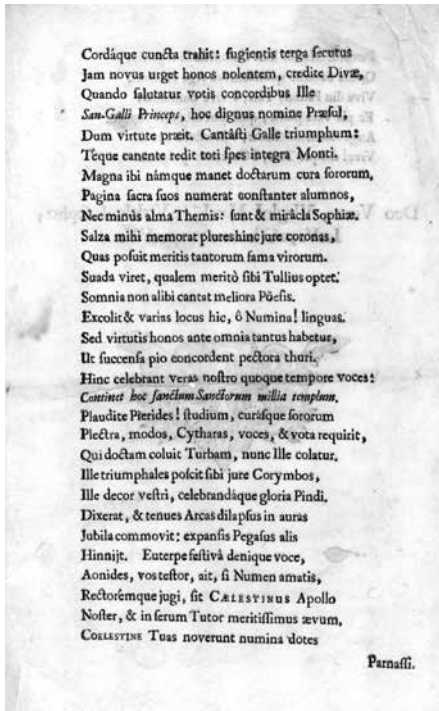 Cordáque cuncta trahit: fugientis terga secutus
Jam novus urget honos nolentem, credite Divæ,
Quando salutatur votis concordibus Ille
San-Galli Princeps, hoc dignus nomine Præsul,
Dum virtute præit. Cantâsti Galle triumphum:
Téque canente redit toti spes integra Monti.
Magna ibi námque manet doctarum cura sororum,
Pagina sacra suos numerat constanter alumnos,
Nec minùs alma Themis: sunt & mirácla Sophiæ.
Salza mihi memorat plures hinc jure coronas,
Quas posuit meritis tantorum fama virorum.
Suada viret, qualem meritò sibi Tullius optet.
Somnia non alibi cantat meliora Pöesis.
Excolit & varias locus hic, ô Numina! linguas.
Sed virtutis honos ante omnia tantus habetur,
Ut succensa pio concordent pectora thuri.
Hinc celebrant veras nostro quoque tempore voces:
Continet hoc sanctum Sanctorum millia templum.
Plaudite Pierides! studium, curásque sororum
Plectra, modos, Cytharas, voces, & vota requirit,
Qui doctam coluit Turbam, nunc Ille colatur.
Ille triumphales poscit sibi jure Corymbos,
Ille decor vestri, celebrandáque gloria Pindi.
Dixerat, & tenues Arcas dilapsus in auras
Jubila commovit: expansis Pegasus alis
Hinnijt. Euterpe festivâ denique voce,
Aonides, vos testor, ait, si Numen amatis,
Rectorémque jugi, sit CÆLESTINUS Apollo
Noster, & in serum Tutor meritissimus ævum.
COELESTINE Tuas noverunt numina dotes
Parnassi.